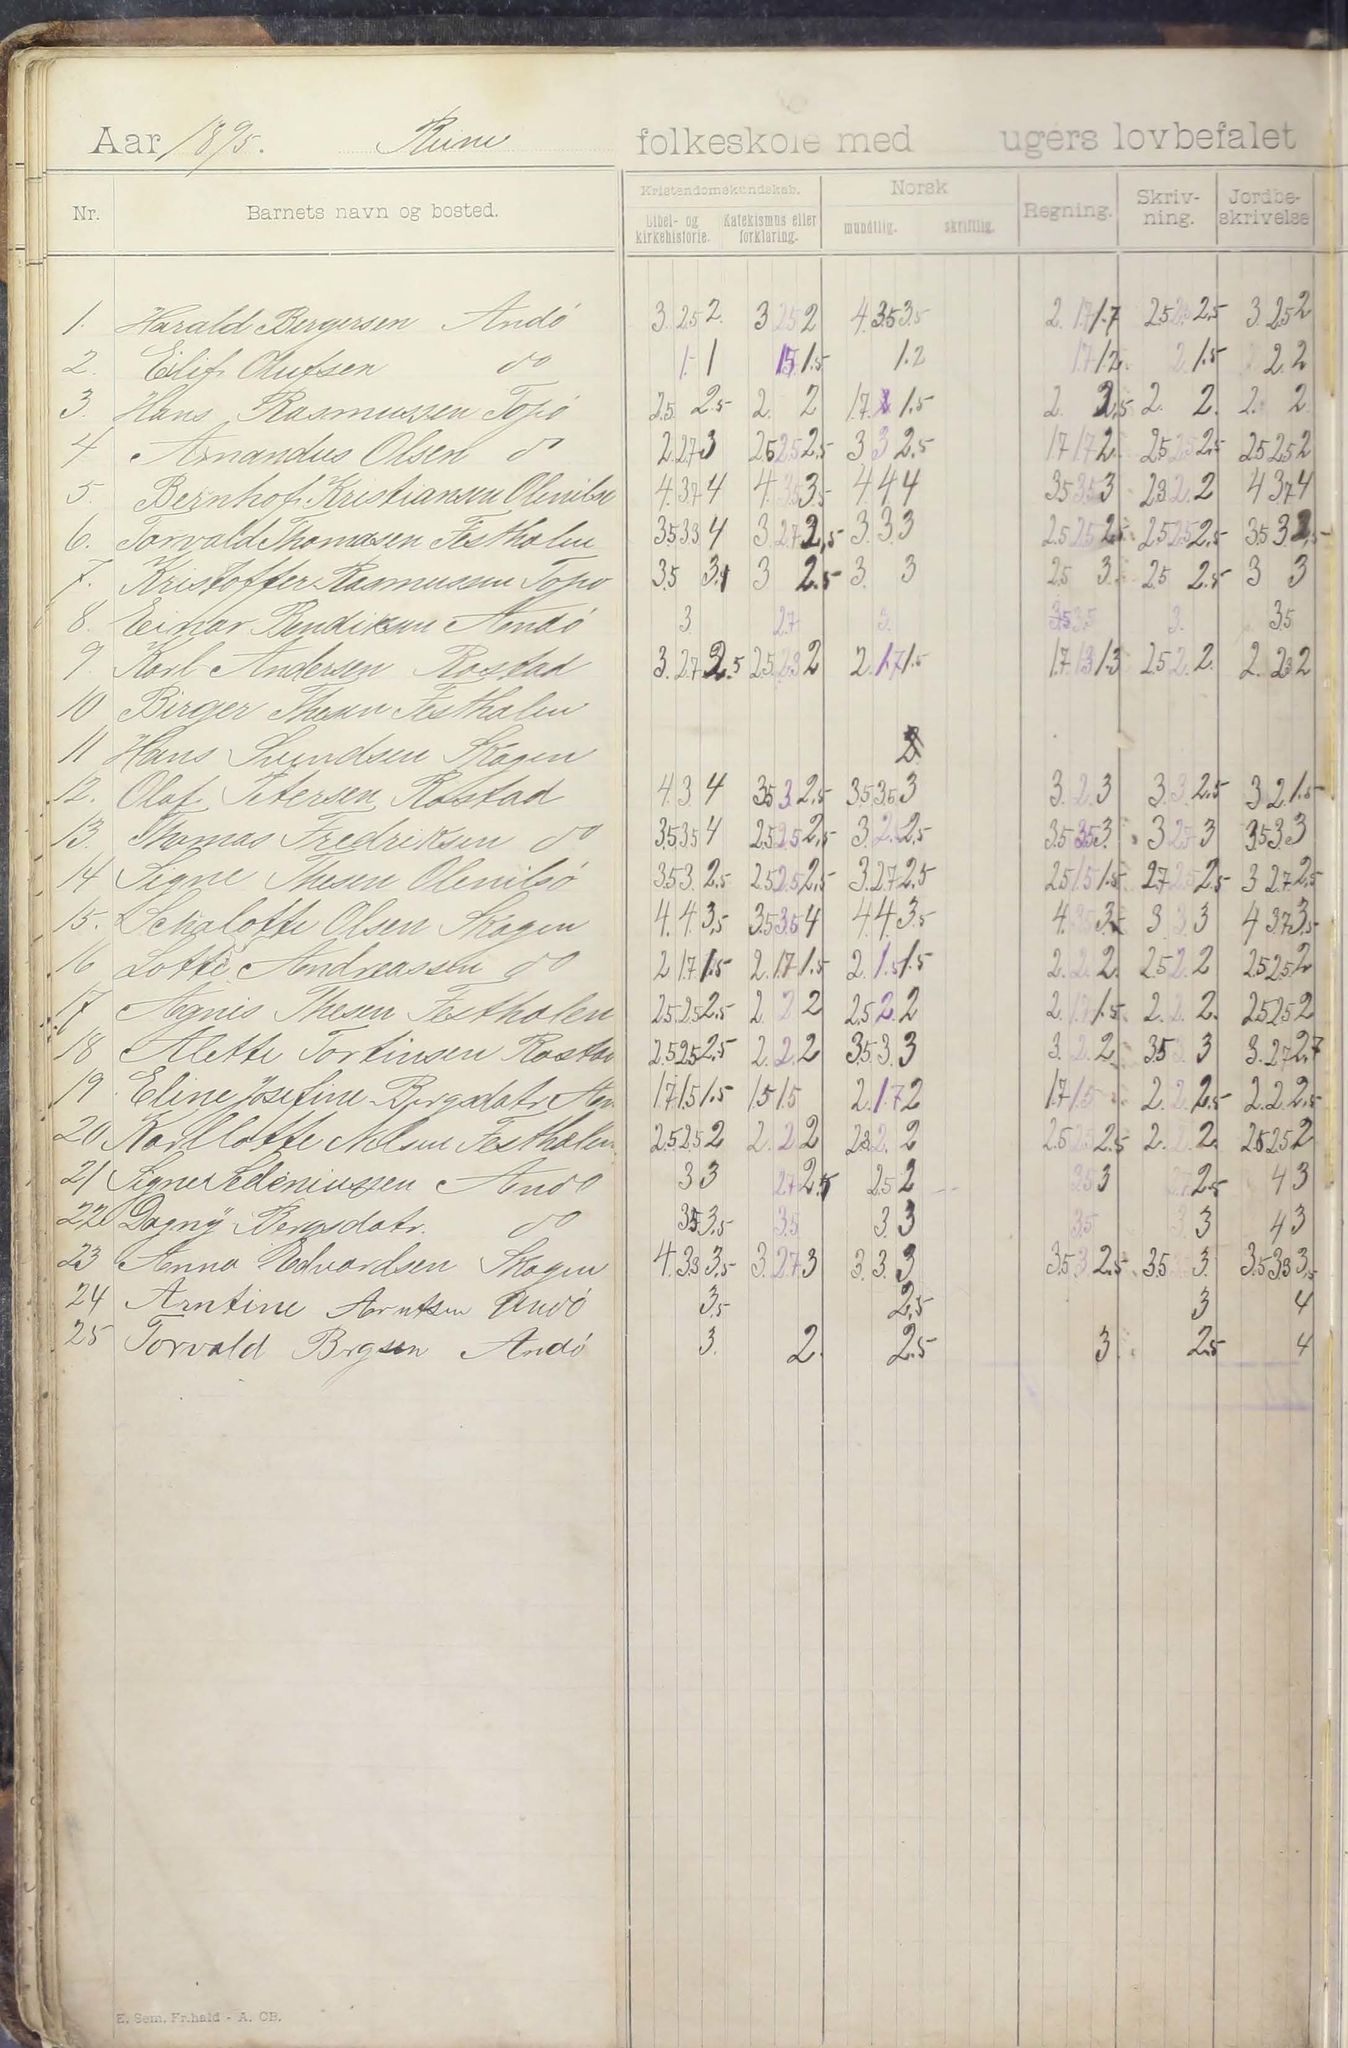 Aar 1895. Reine folkeskole med ugers lovbefalet
Nr. Barnets navn og bosted. Kristendomskundskab. Norsk Regning. Skriv-ning. Jordbe-skrivelse
Bibel- og kirkehistorie. Katekismus eller forklaring. mundtlig. skriftlig.
1. Harald Bergersen Andö 3. 2.5 2. 3 2.5 2 4. 3.5 3.5 2. 1.7 1.7 2.5 2. 2.5 3. 2.5 2
2. Eilif Olufsen do 1. 1 1.5 1.5 1.2 1.7 1.2 2 1.5 2. 2
3. Hans Rasmussen Topö 2.5 2.5 2. 2 1.7 2 1.5 2. 2.5 2. 2. 2. 2.
4 Arnandus Olsen do 2. 2.7 3 2.5 2.5 2.5 3 3 2.5 1.7 1.7 2 2.5 2.5 2.5 2.5 2.5 2
5. Bernhof Kristiansen Olenilsö 4. 3.7 4 4. 3.5 3.5 4. 4. 4 3.5 3.5 3 2.3 2. 2 4 3.7 4
6. Torvald Thomasen Festhælen 3.5 3.3 4 3. 2.7 2.5 3. 3. 3 2.5 2.5 2.5 2.5 2.5 2.5 3.5 3
7. Kristoffer Rasmussen Topö 3.5 3.1 3 2.5 3. 3 2.5 3. 2.5 2.5 3 3
8. Einar Bendiksen Andö 3. 2.7 3. 3.5 3.5 3. 3.5
9. Karl Andersen Rostad 3. 2.7 2.5 2.5 2.3 2 2. 1.7 1.5 1.7 1.3 1.3 2.5 2. 2. 2. 2.3 2
10 Birger Thesen Festhælen
11 Hans Svendsen Skagen
12. Olaf Petersen Rostad 4. 3 4 3.5 3. 2.5 3.5 3.5 3 3. 2. 3 3. 3. 2.5 3 2. 1.5
13. Thomas Fredriksen do 3.5 3.5 4 2.5 2.5 2.5 3. 2.5 2.5 3.5 3.5 3 3 2.5 3 3.5 3 3
14 Signe Thesen Olenilsö 3.5 3. 2.5 2.5 2.5 2.5 3. 2.7 2.5 2.5 1.5 1.5 2.7 2.5 2.5 3 2.7 2.5
15. Schalotte Olsen Skagen 4. 4. 3.5 3.5 3.5 4 4. 4. 3.5 4. 3.5 3. 3 3 3 4 3.7 3.5
16 Lotte Andreassen do 2 1.7 1.5 2. 1.7 1.5 2. 1.5 1.5 2. 2. 2. 2.5 2. 2 2.5 2.5 2
17 Agnis Thesen Festhælen 2.5 2.5 2.5 2. 2 2 2.5 2. 2 2. 1.7 1.5 2. 2. 2. 2.5 2.5 2
18 Alette Tortinsen Rostad 2.5 2.5 2.5 2. 2. 2 3.5 3. 3 3. 2. 2 3.5 3. 3 3. 2.7 2.7
19. Eline Josefine Bergsdatr. An 1.7 1.5 1.5 1.5 1.5 2. 1.7 2 1.7 1.5 2. 2. 2.5 2. 2. 2.5
20 Karl lotte Nelsen Festhælen 2.5 2.5 2 2. 2. 2 2.3 2. 2 2.5 2.5 2.5 2. 2. 2. 2.5 2.5 2
21 Signe Edeniussen Andö 3 3 2.7 2.5 2.5 2 2.5 3 2.7 2.5 4 3
22 Dagny Bergsdatr. do 3.5 3.5 3.5 3. 3 3.5 3. 3 4 3
23 Anna Edvardsen Skagen 4. 3.3 3.5 3. 2.7 3 3. 3. 3 3.5 3. 2.5 3.5 3.5 3. 3.5 3.3 3.5
24 Arntine Arntsen Andö 3.5 2.5 3 4
25 Torvald Brgsen Andö 3. 2. 2.5 3 2.5 4
E. Sem, Fr.hald - A. CB.